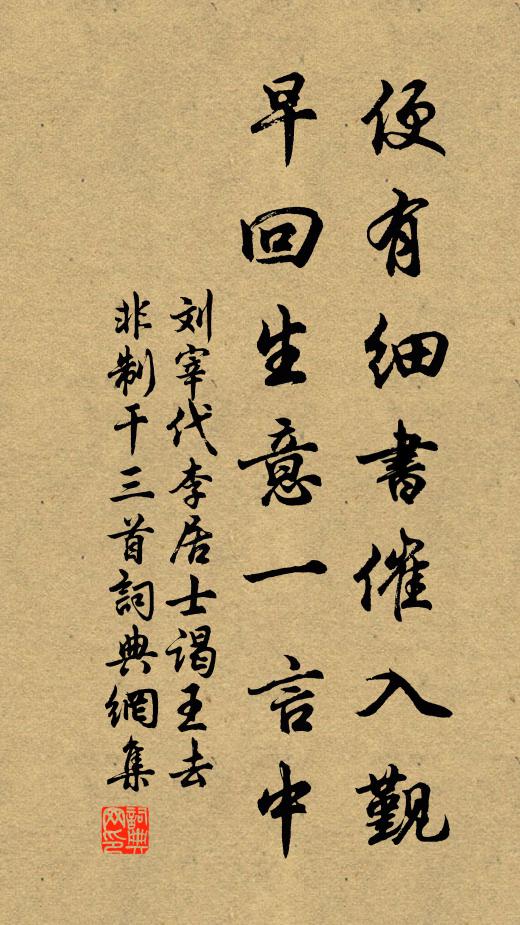 便有細書催入覲
早回生意一言中
刘宰代李居士谒王去
非制干三首詞典網集
詞典
网印